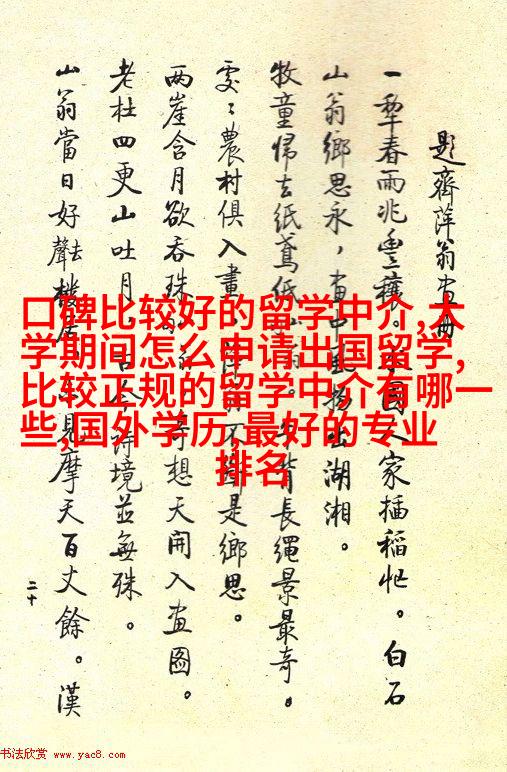 題齊萍翁畫冊
一犁春雨兆豐穰。園人家插稻忙。白石
山翁鄉思永,畫中風物出湖湘。
牧童歸去紙鳶低 背長繩景最奇。
處〻農村俱入畫 不 是鄉思。
兩崖含月欲吞珠 奇想天開入畫圖。
老杜四更山吐月,古今詩境並無殊。
山翁當日好聲去樓居 見摩天百丈餘。漢
二十
口碑比较好的留学中介,大
学期间怎么申请出国留学,
比较正规的留学中介有哪一
些,国外学历,最好的专业
排名
书法欣赏 www.yac8.com